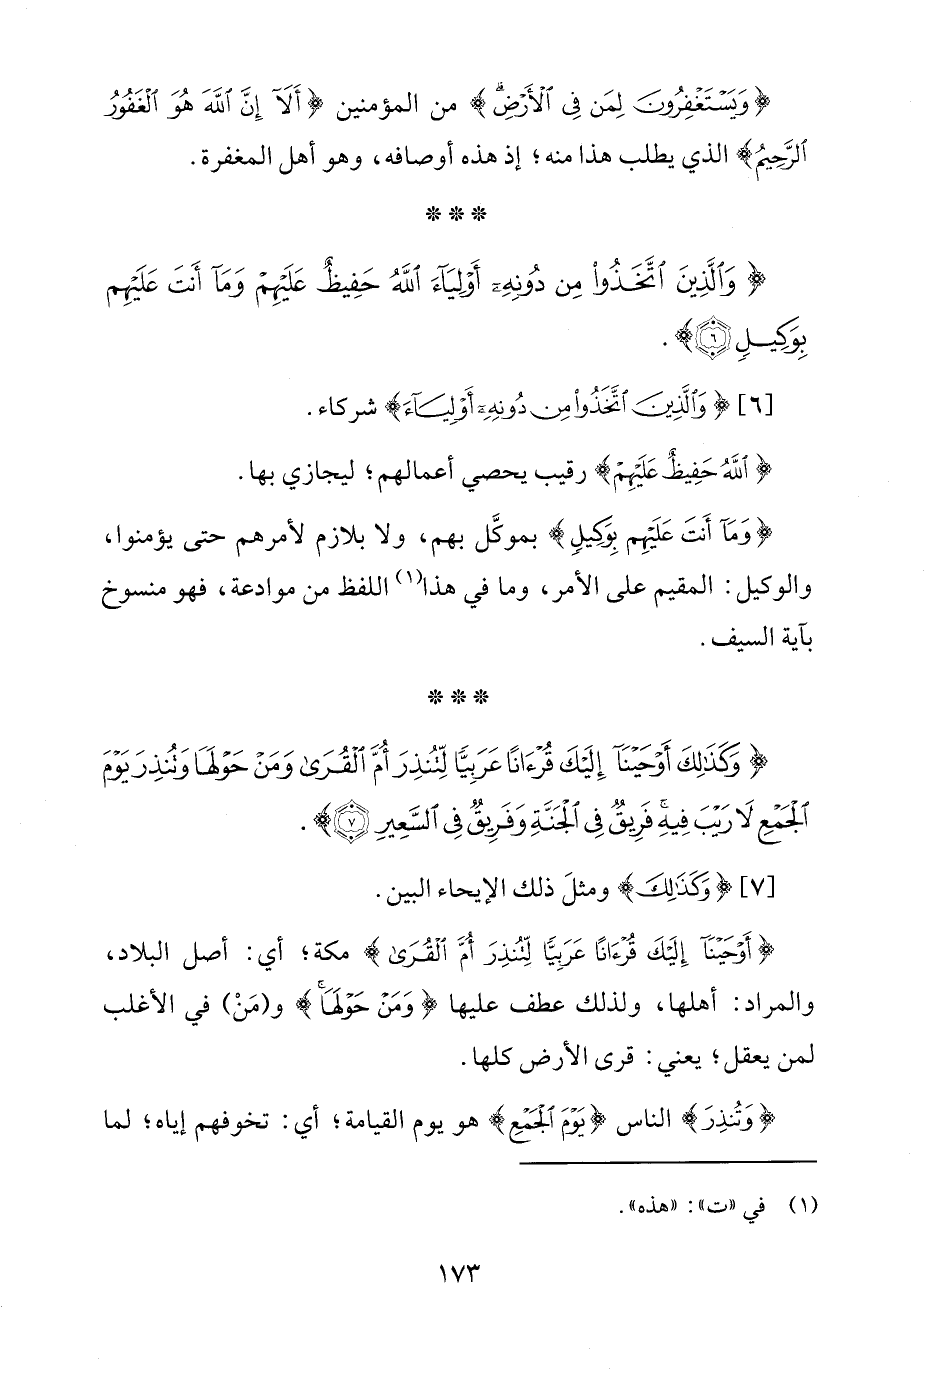 ﴿وَيَسْتَغْفِرُونَ لِمَن فِي ٱلْأَرْضِۗ﴾ من المؤمنين ﴿أَلَآ إِنَّ ٱللَّهَ هُوَ ٱلْغَفُورُ
ٱلرَّحِيمُ﴾ الذي يطلب هذا منه؛ إذ هذه أوصافه، وهو أهل المغفرة.
* * *
﴿وَٱلَّذِينَ ٱتَّخَذُوا۟ مِن دُونِهِۦٓ أَوْلِيَآءَ ٱللَّهُ حَفِيظٌ عَلَيْهِمْ وَمَآ أَنتَ عَلَيْهِم
بِوَكِيلٍ ٦﴾.
[٦] ﴿وَٱلَّذِينَ ٱتَّخَذُوا۟ مِن دُونِهِۦٓ أَوْلِيَآءَ﴾ شركاء.
﴿ٱللَّهُ حَفِيظٌ عَلَيْهِمْ﴾ رقيب يحصي أعمالهم؛ ليجازي بها.
﴿وَمَآ أَنتَ عَلَيْهِم بِوَكِيلٍ﴾ بموكَّل بهم، ولا بلازم لأمرهم حتى يؤمنوا،
والوكيل: المقيم على الأمر، وما في هذا(١) اللفظ من موادعة، فهو منسوخ
بآية السيف.
* * *
﴿وَكَذَٰلِكَ أَوْحَيْنَآ إِلَيْكَ قُرْءَانًا عَرَبِيًّا لِّتُنذِرَ أُمَّ ٱلْقُرَىٰ وَمَنْ حَوْلَهَا وَتُنذِرَ يَوْمَ
ٱلْجَمْعِ لَا رَيْبَ فِيهِۚ فَرِيقٌ فِي ٱلْجَنَّةِ وَفَرِيقٌ فِي ٱلسَّعِيرِ ٧﴾.
[٧] ﴿وَكَذَٰلِكَ﴾ ومثلَ ذلك الإيحاء البين.
﴿أَوْحَيْنَآ إِلَيْكَ قُرْءَانًا عَرَبِيًّا لِّتُنذِرَ أُمَّ ٱلْقُرَىٰ﴾ مكة؛ أي: أصل البلاد،
والمراد: أهلها، ولذلك عطف عليها ﴿وَمَنْ حَوْلَهَاۚ﴾ و(مَنْ) في الأغلب
لمن يعقل؛ يعني: قرى الأرض كلها.
﴿وَتُنذِرَ﴾ الناس ﴿يَوْمَ ٱلْجَمْعِ﴾ هو يوم القيامة؛ أي: تخوفهم إياه؛ لما
(١) في «ت»: «هذه».
١٧٣